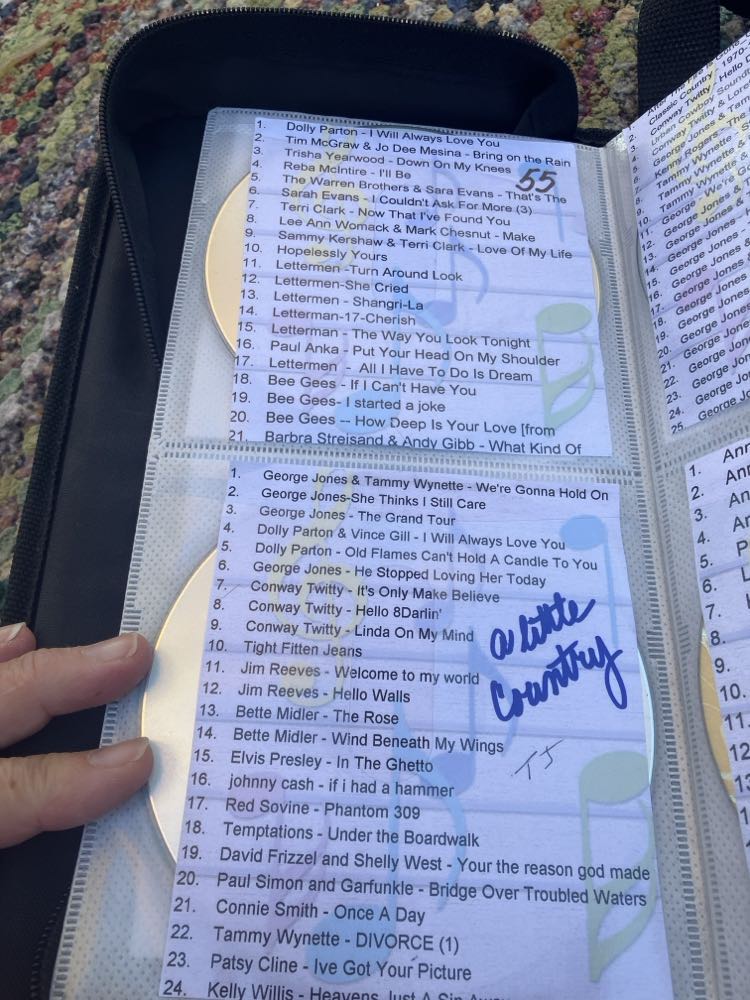 1. Dolly Parton - I Will Always Love You
2. Tim McGraw & Jo Dee Mesina - Bring on the Rain
3. Trisha Yearwood - Down On My Knees
4. Reba McIntire - I'll Be
5. The Warren Brothers & Sara Evans - That's The
6. Sarah Evans - I Couldn't Ask For More (3)
7. Terri Clark - Now That I've Found You
8. Lee Ann Womack & Mark Chesnut - Make
9. Sammy Kershaw & Terri Clark - Love Of My Life
10. Hopelessly Yours
11. Lettermen -Turn Around Look
12. Lettermen-She Cried
13. Lettermen - Shangri-La
14. Letterman-17-Cherish
15. Letterman - The Way You Look Tonight
16. Paul Anka - Put Your Head On My Shoulder
17. Lettermen - All I Have To Do Is Dream
18. Bee Gees - If I Can't Have You
19. Bee Gees- I started a joke
20. Bee Gees -- How Deep Is Your Love [from
21. Barbra Streisand & Andy Gibb - What Kind Of
55
1. George Jones & Tammy Wynette - We're Gonna Hold On
2. George Jones-She Thinks I Still Care
3. George Jones - The Grand Tour
4. Dolly Parton & Vince Gill - I Will Always Love You
5. Dolly Parton - Old Flames Can't Hold A Candle To You
6. George Jones - He Stopped Loving Her Today
7. Conway Twitty - It's Only Make Believe
8. Conway Twitty - Hello 8Darlin'
9. Conway Twitty - Linda On My Mind
10. Tight Fitten Jeans
11. Jim Reeves - Welcome to my world
12. Jim Reeves - Hello Walls
13. Bette Midler - The Rose
14. Bette Midler - Wind Beneath My Wings
15. Elvis Presley - In The Ghetto
16. johnny cash - if i had a hammer
17. Red Sovine - Phantom 309
18. Temptations - Under the Boardwalk
19. David Frizzel and Shelly West - Your the reason god made
20. Paul Simon and Garfunkle - Bridge Over Troubled Waters
21. Connie Smith - Once A Day
22. Tammy Wynette - DIVORCE (1)
23. Patsy Cline - Ives Got Your Picture
24. Kelly Willis - Heavens Just A Sin
a little
Country
TJ
Classic Country 1970-
Conway Twitty - Hello D
Urban Cowboy
George Jones & Tam
Kenny Rogers - The
Tammy Wynette &
Tammy Wynette
10. Tammy Wynette
11. George
12. George Jones &
13. George Jones
14. George Jones
15. George Jones
16. George Jones
17. George Jones
18. George Jones
19. George Jones
20. George Jones
21. George Jones
22. George Jones
23. George Jo
24. George Jo
25. George Jo
1. Ann
2. An
3. An
4. A
5. P
6. L
7.
8.
9.
10.
11.
12.